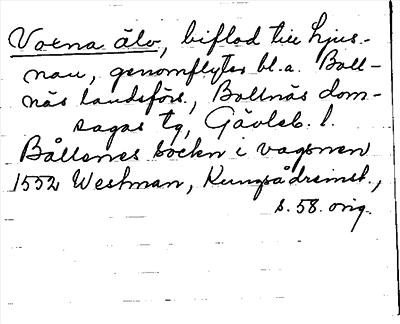 Voxna älv, biflod till Ljus-
nan, genomflyter bl.a. Boll-
näs landsförs., Bollnäs dom-
sagas tg, Gävleb. l.
Bållenes socken i vagsnen
1552 Westman, Kungsådreinst.,
s. 58. orig.